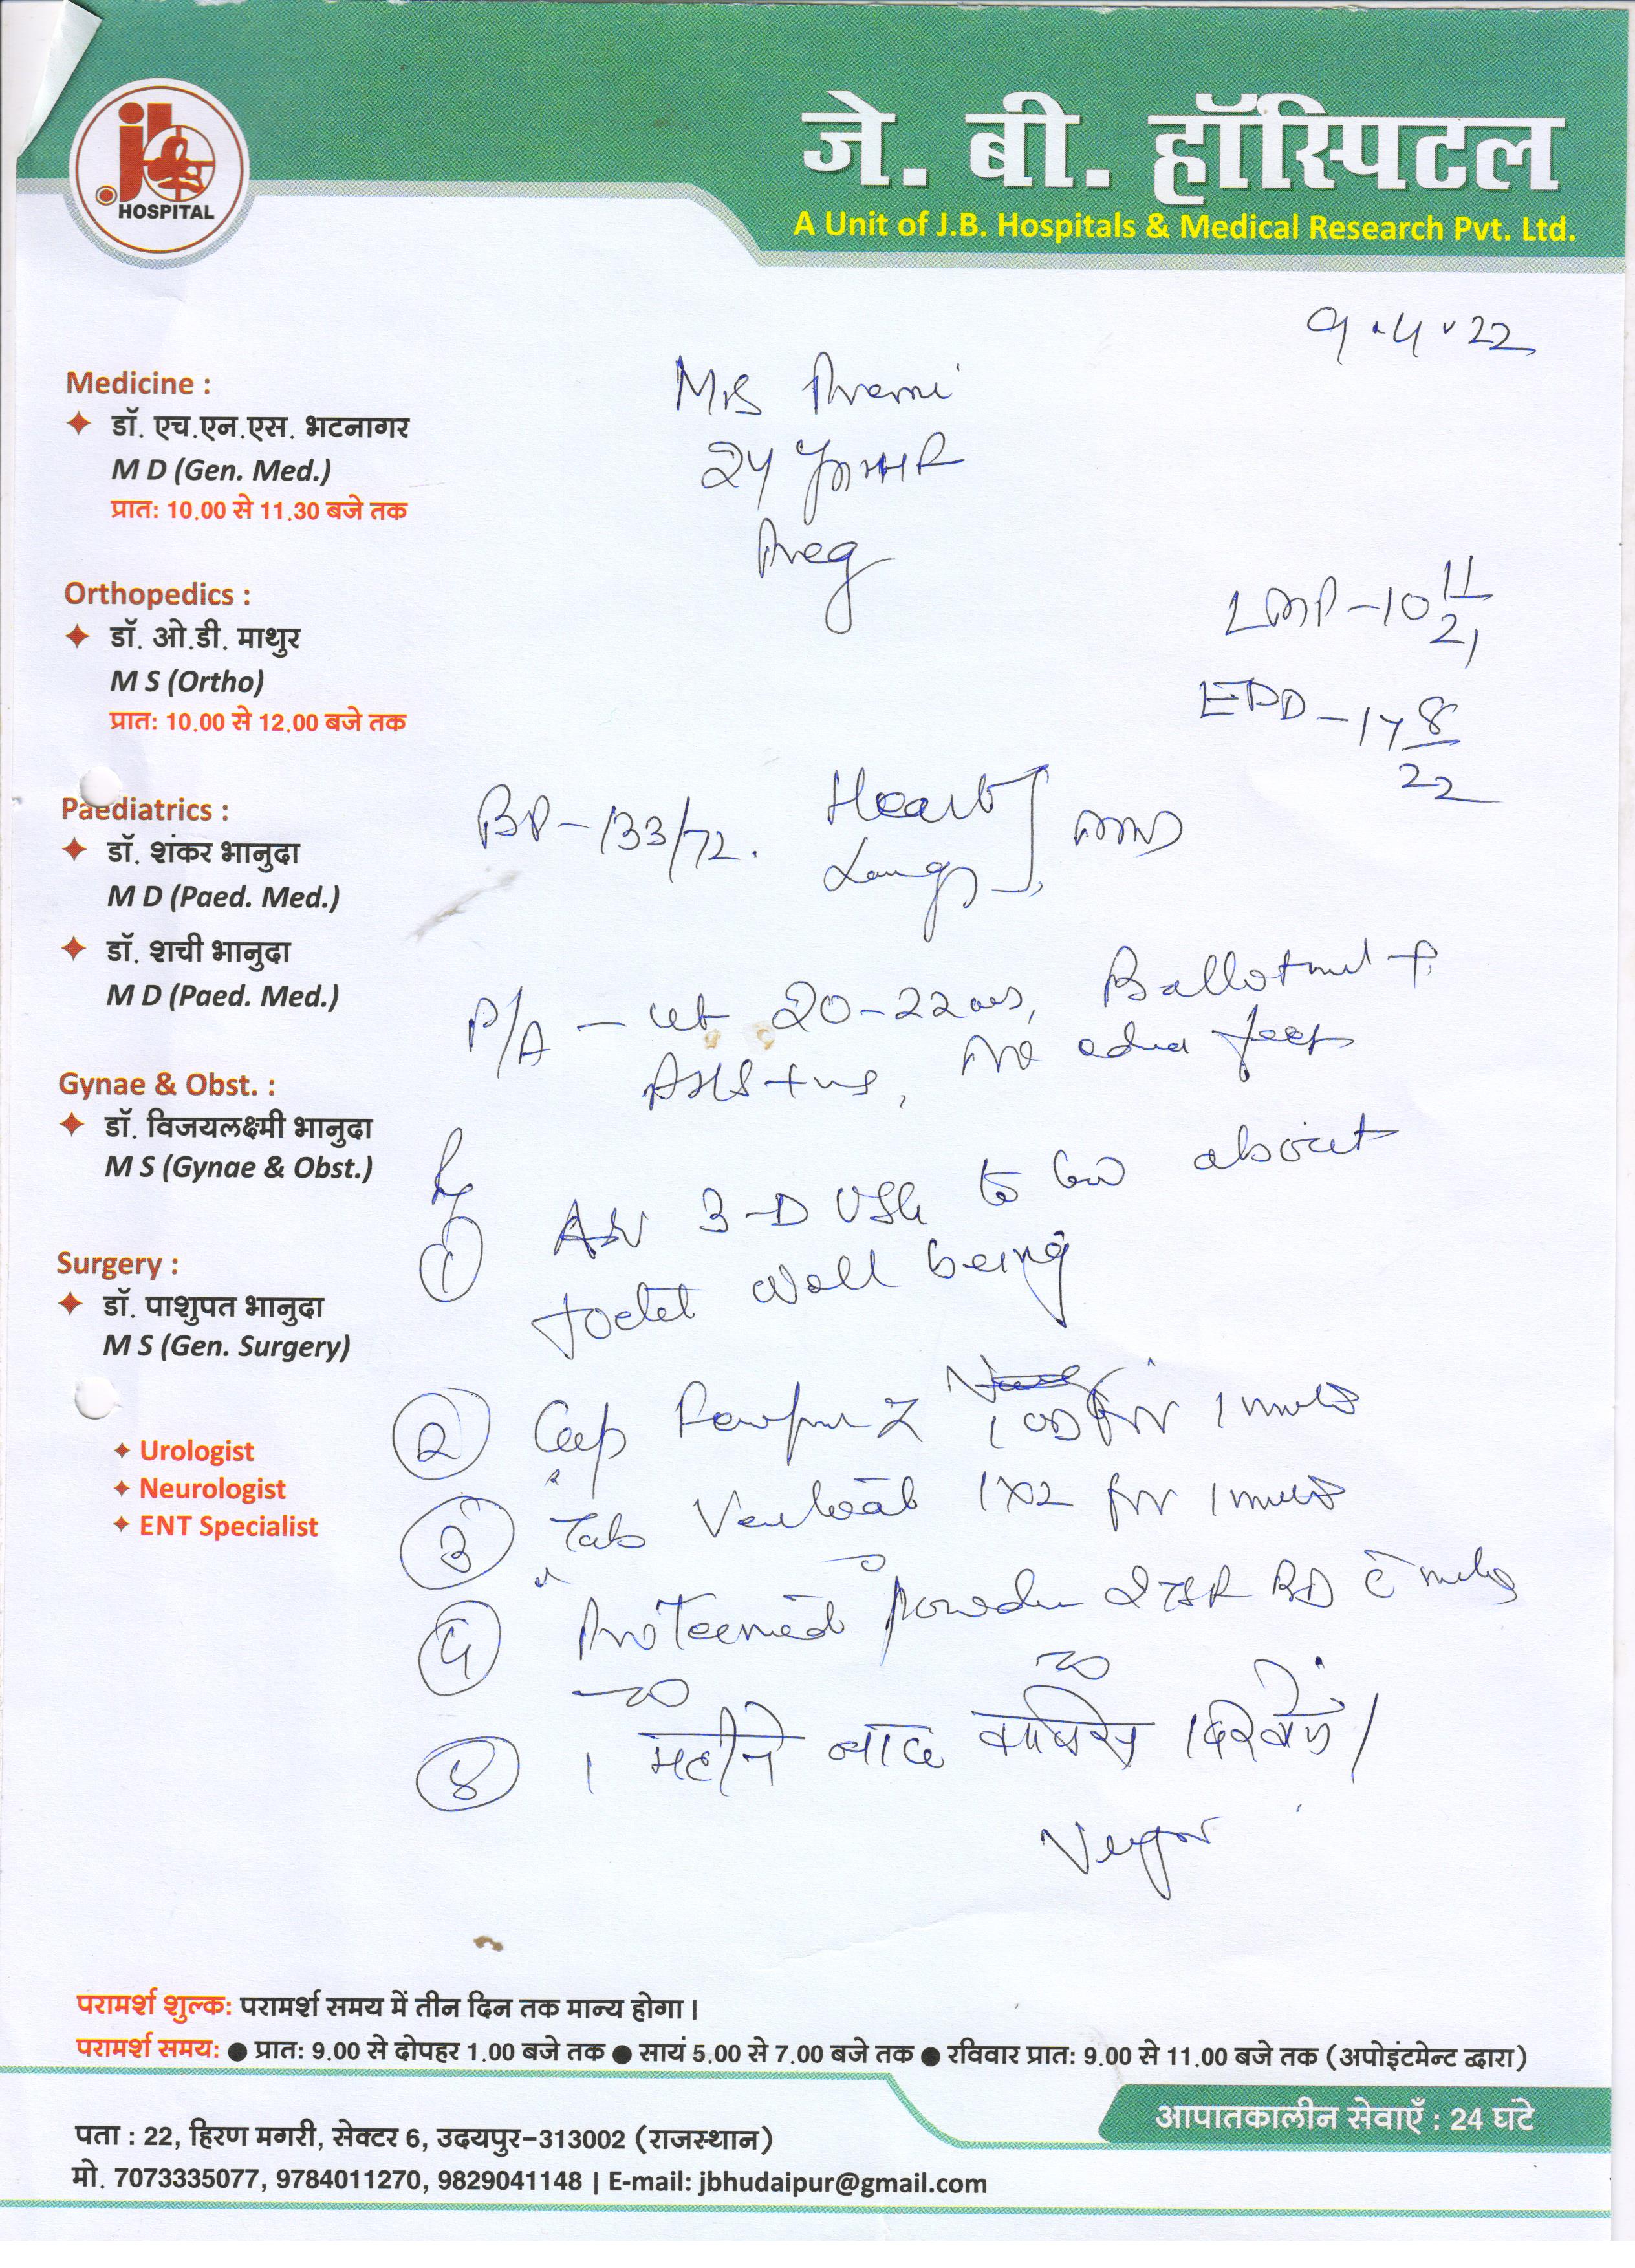 jb
HOSPITAL
जे. बी. हॉस्पिटल
A Unit of J.B. Hospitals & Medical Research Pvt. Ltd.
9.4.22
Medicine :
डॉ. एच.एन.एस. भटनागर
M D (Gen. Med.)
प्रात: 10.00 से 11.30 बजे तक
Orthopedics :
डॉ. ओ.डी. माथुर
M S (Ortho)
प्रात: 10.00 से 12.00 बजे तक
Paediatrics :
डॉ. शंकर भानुदा
M D (Paed. Med.)
डॉ. शची भानुदा
M D (Paed. Med.)
Gynae & Obst. :
डॉ. विजयलक्ष्मी भानुदा
M S (Gynae & Obst.)
Surgery :
डॉ. पाशुपत भानुदा
M S (Gen. Surgery)
Urologist
Neurologist
ENT Specialist
Mrs
24
Preg
LMP-10 11/21
EDD-17 8/22
BP-133/72. Heart
Lungs
P/A - ut 20-22 Ballotment +
No feet
① 3-D USG to about
well being
② Cap for 1
③ Tab 1x2 for 1
④ powder BD c milk
⑤ 1 महीने बाद वापिस दिखावें।
परामर्श शुल्क: परामर्श समय में तीन दिन तक मान्य होगा।
परामर्श समय: ● प्रात: 9.00 से दोपहर 1.00 बजे तक ● सायं 5.00 से 7.00 बजे तक ● रविवार प्रात: 9.00 से 11.00 बजे तक (अपोइंटमेन्ट द्वारा)
आपातकालीन सेवाएँ : 24 घंटे
पता : 22, हिरण मगरी, सेक्टर 6, उदयपुर-313002 (राजस्थान)
मो. 7073335077, 9784011270, 9829041148 | E-mail: jbhudaipur@gmail.com